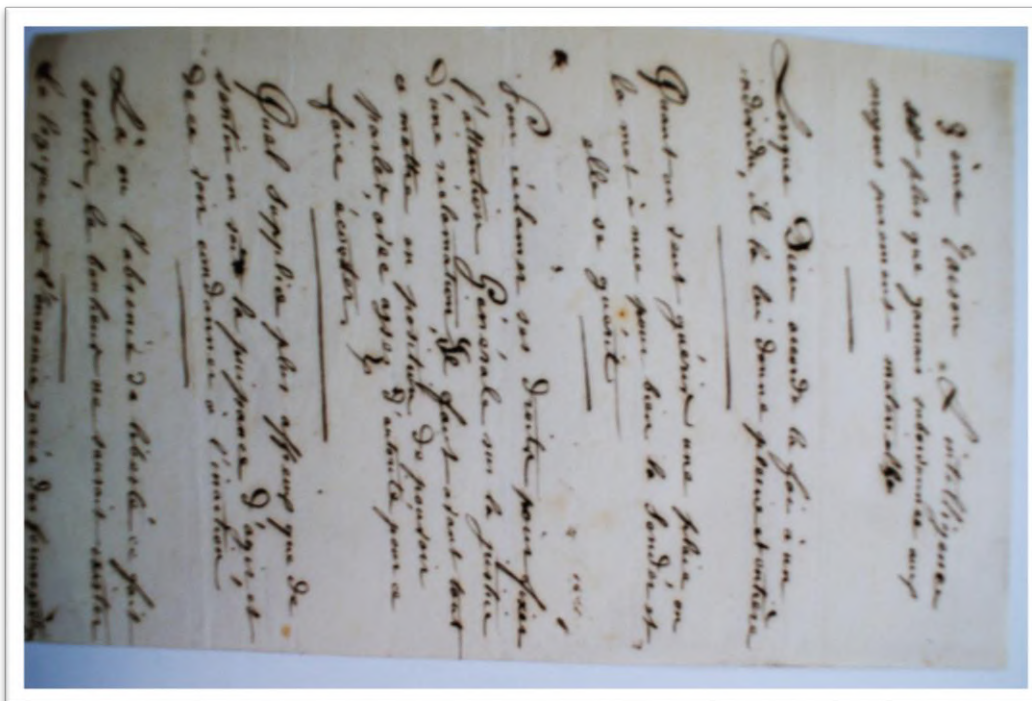 d'une Gaison. L'intelligence
plus que jamais subordonnée aux
organes purement matériels
Lorque Dieu accorde la foi à un
individu, il la lui donne pleine et entière
Quant on veut guérir une plaie on
la met à nue pour bien la sonder et
elle se guérit
Pour réclamer ses droits, pour fixer
l'attention Générale sur la justice
D'une réclamation, Il faut avant tout
ce mettre en position de pouvoir
parler, assez d'autorité pour ce
faire écouter,
Quel supplice plus affreux que de
sentir en soi la puissance D'agir et
de ce voir condamner à l'inaction
Là ou l'abscence de liberté ce fait
sentir, le bonheur ne saurait exister
La logique est l'ennemie jurée des